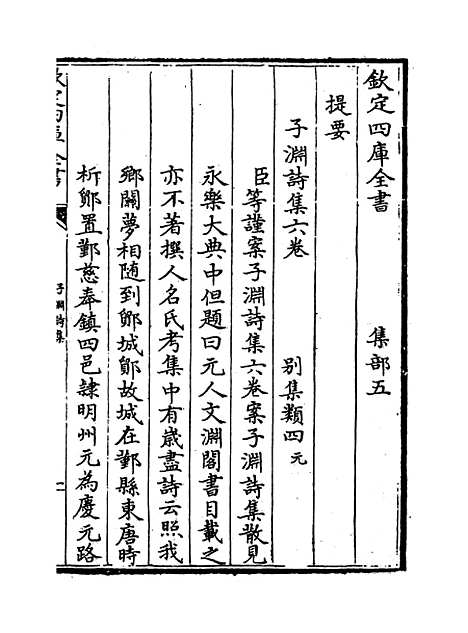 欽定四庫全書 集部五
提要
子淵詩集六卷 別集類四元
臣等謹案子淵詩集六卷案子淵詩集散見
永樂大典中但題曰元人文淵閣書目載之
亦不著撰人名氏考集中有歲盡詩云照我
鄉關夢相隨到鄮城鄮故城在鄞縣東唐時
析鄮置鄞慈奉鎮四邑隷明州元為慶元路
子淵詩集